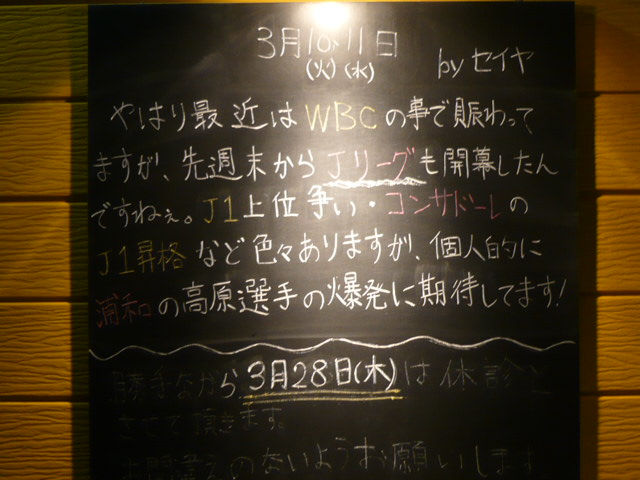 3月10、11日
(火)(水) by セイヤ
やはり最近はWBCの事で賑わって
ますが、先週末からJリーグも開幕したん
ですねぇ。J1上位争い・コンサドーレの
J1昇格など色々ありますが、個人的に
浦和の高原選手の爆発に期待してます!
勝手ながら3月28日(木)は休診と
させて頂きます。
お間違えのないようお願いします